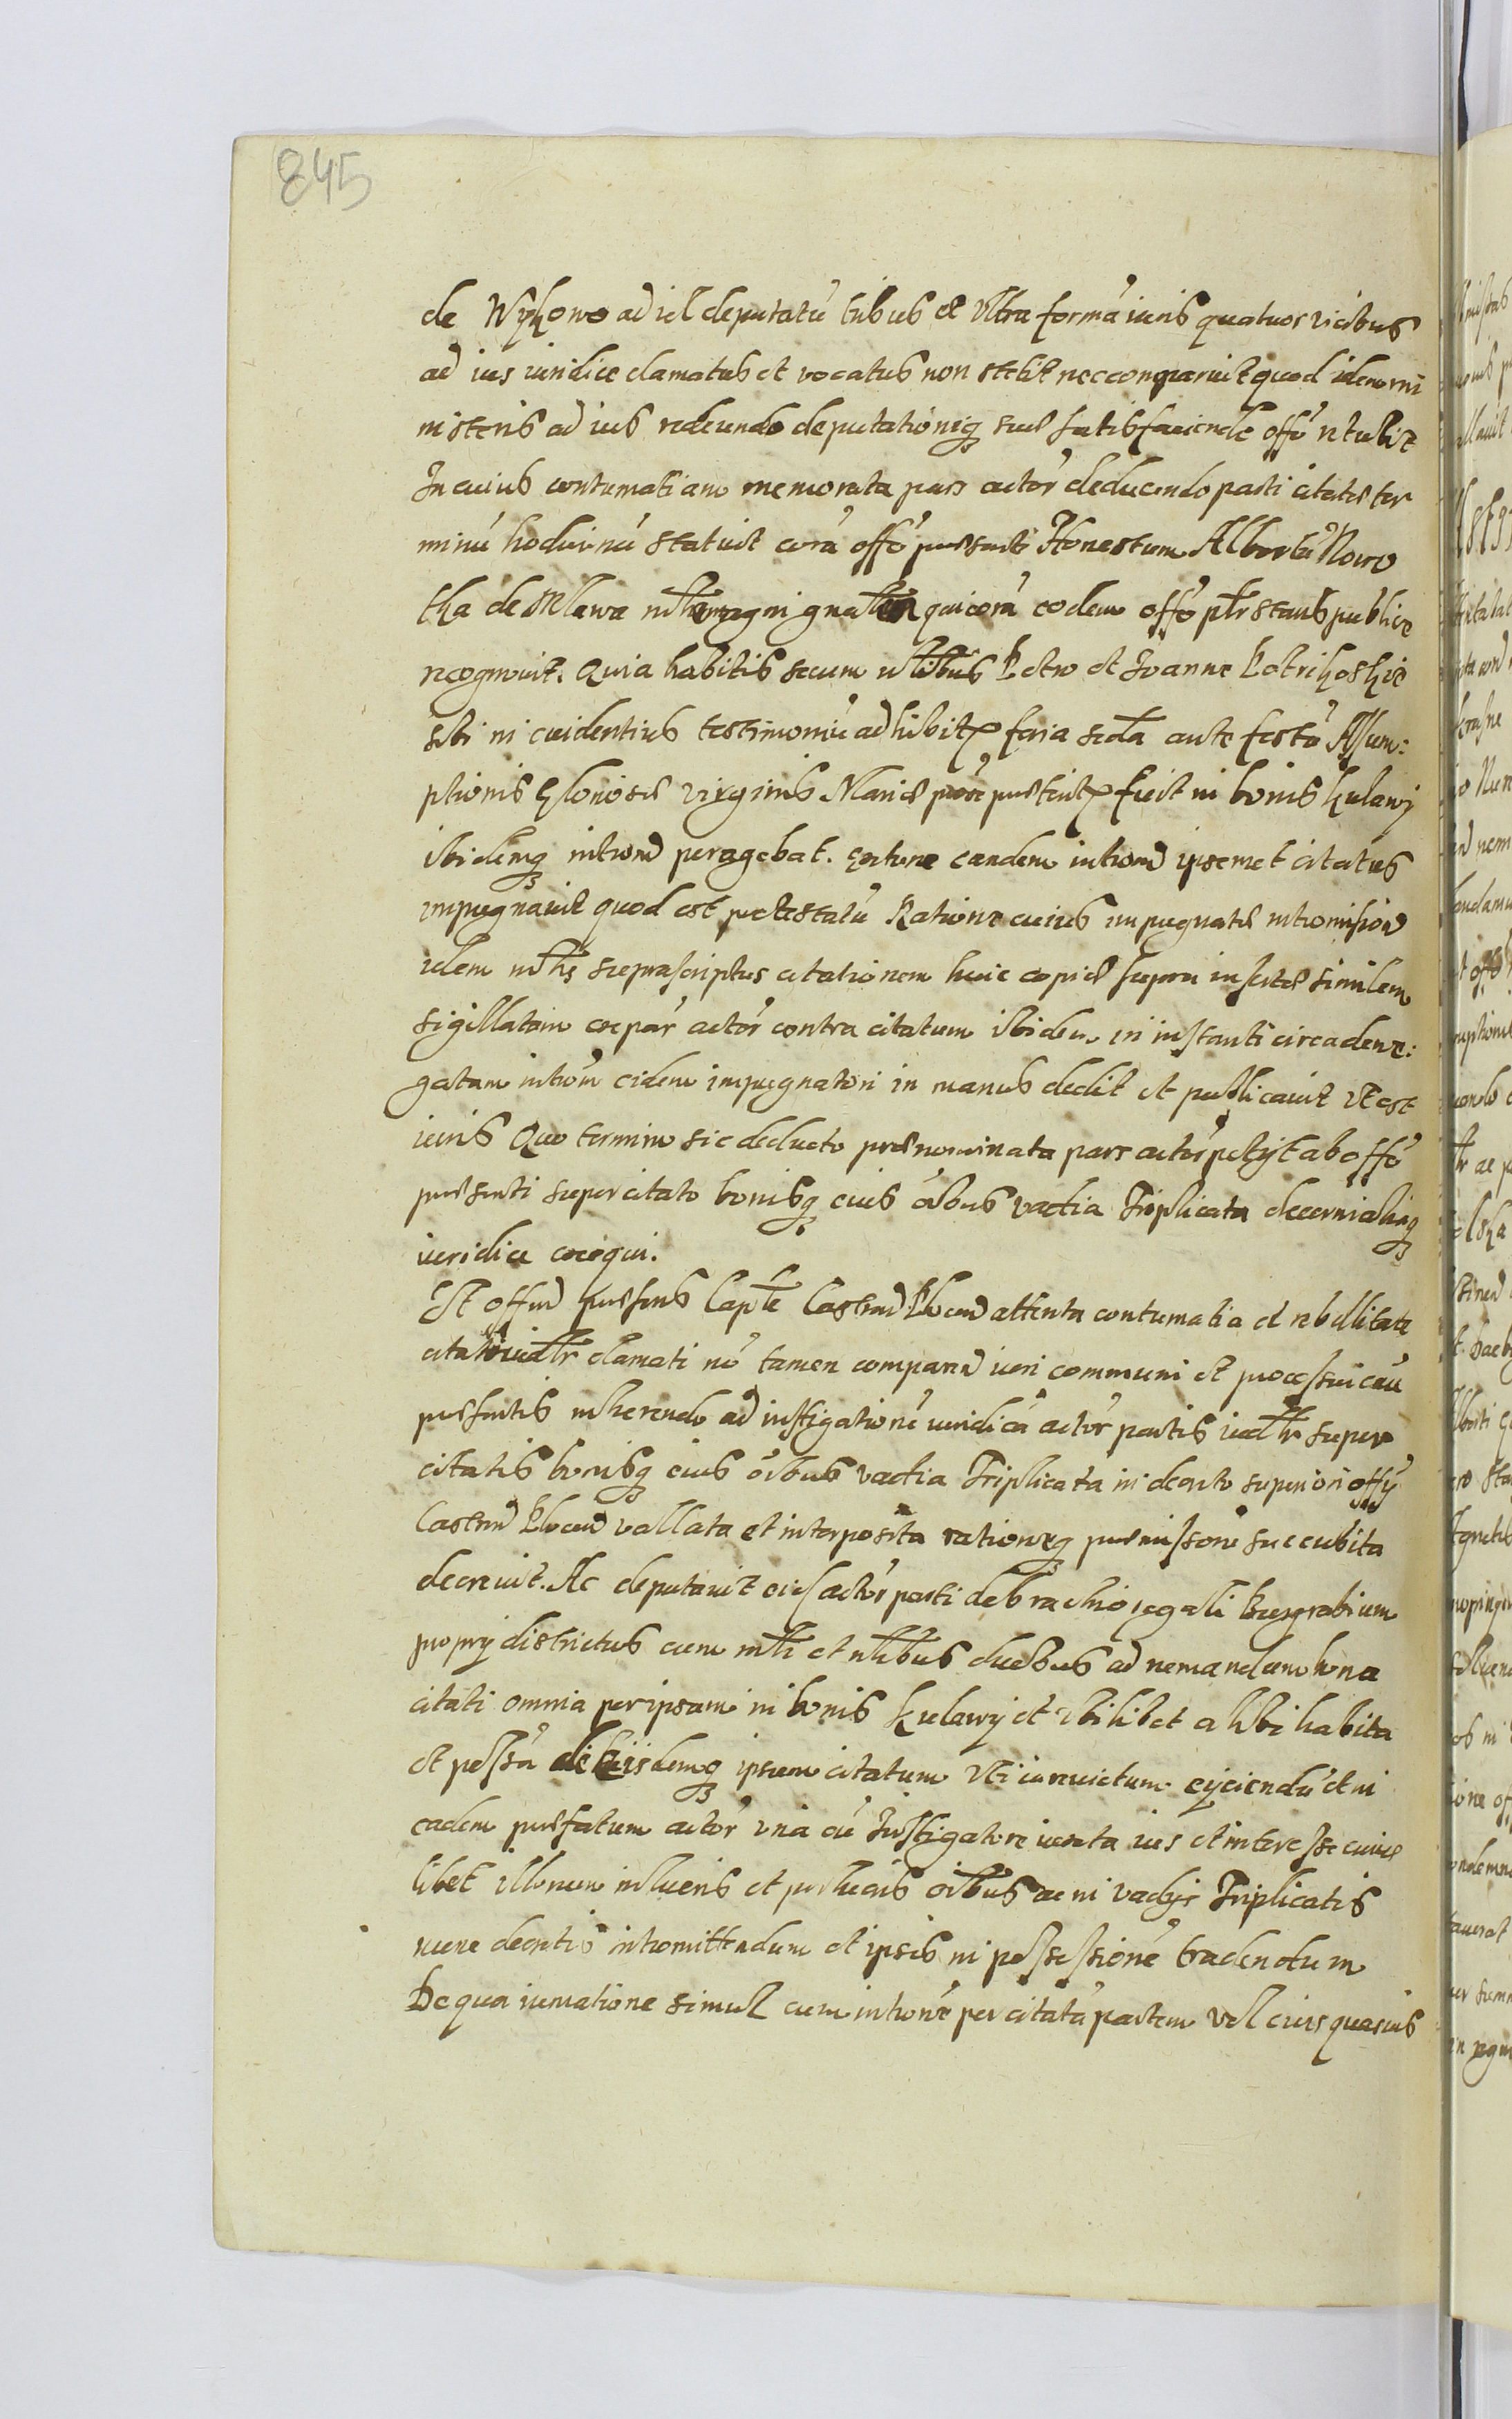 845
de Wykowo ad id deputatū tribus et ultra formā iuris quatuor vicibus
ad ius iuridice clamatus et vocatus non stetit nec comparuit quod idem mi
nisteris ad ius redeundo deputationiq suae satisfaciendo offō retulit
In cuius contumatiam memorata pars actor deducendo parti citatae ter
minū hodiernū statuit corā offō praesenti Honestum Albertū Nowo
tka de Mlawa qui corā eodem offō pltr stans publice
recognovit. Quia habitis secum nlibus Petro et Joanne Potrikoskie
sibi in evidentius testimoniū adhibitis feria scda ante festū Assum:
ptionis Gloriosae virginis Mariae praeteritis fuit in bonis Kulawy
ibidemq intromd peragebat. eandem intromd ipsemet citatus
impugnavit quod est protestatū Ratione cuius impugnatae intromisiod
idem suprascriptus citationem huic copiae supra insertae similem
sigillatam ex par actor contra citatum ibidem in instanti circa dene:
gatam introm eidem impugnatori in manus dedit et publicavit ut est
iuris Quo termino sic deducto praenominata pars actor petyt ab offō
praesenti super citato bonisq eius oibus vadia Triplicata decerni aliaq
iuridice exequi.
Et offiu praesens Capte Castrn Plocen attenta contumatia et rebellitate
citati clamati nō tamen comparen iuri communi et processui cau
praesentis inherendo ad instigationē iuridicā actor partis super
citatis bonisq eius oibus vadia Triplicata in decreto superiori offy
Castrn Plocen vallata et interposita rationeq praemissorū succubita
decrevit. Ac deputavit eid actor parti de brachio regali Burgrabium
propry districtus cum mli et nlibus duobus ad remandum bona
citati omnia per ipsam in bonis Kulawy et ubilibet alibi habita
et possā de hisdemq ipsum citatum uti iurevictum eyciendū et in
eadem praefatum actor una cū Instigatore iuxta ius et interesse cuius
libet illorum in lucris et perlucris oibus ac in vadys Triplicatis
decretis intromittendum et ipsis in possessionē tradendum
De qua rumatione simul cum introne per citatā partem vel eius quasvis